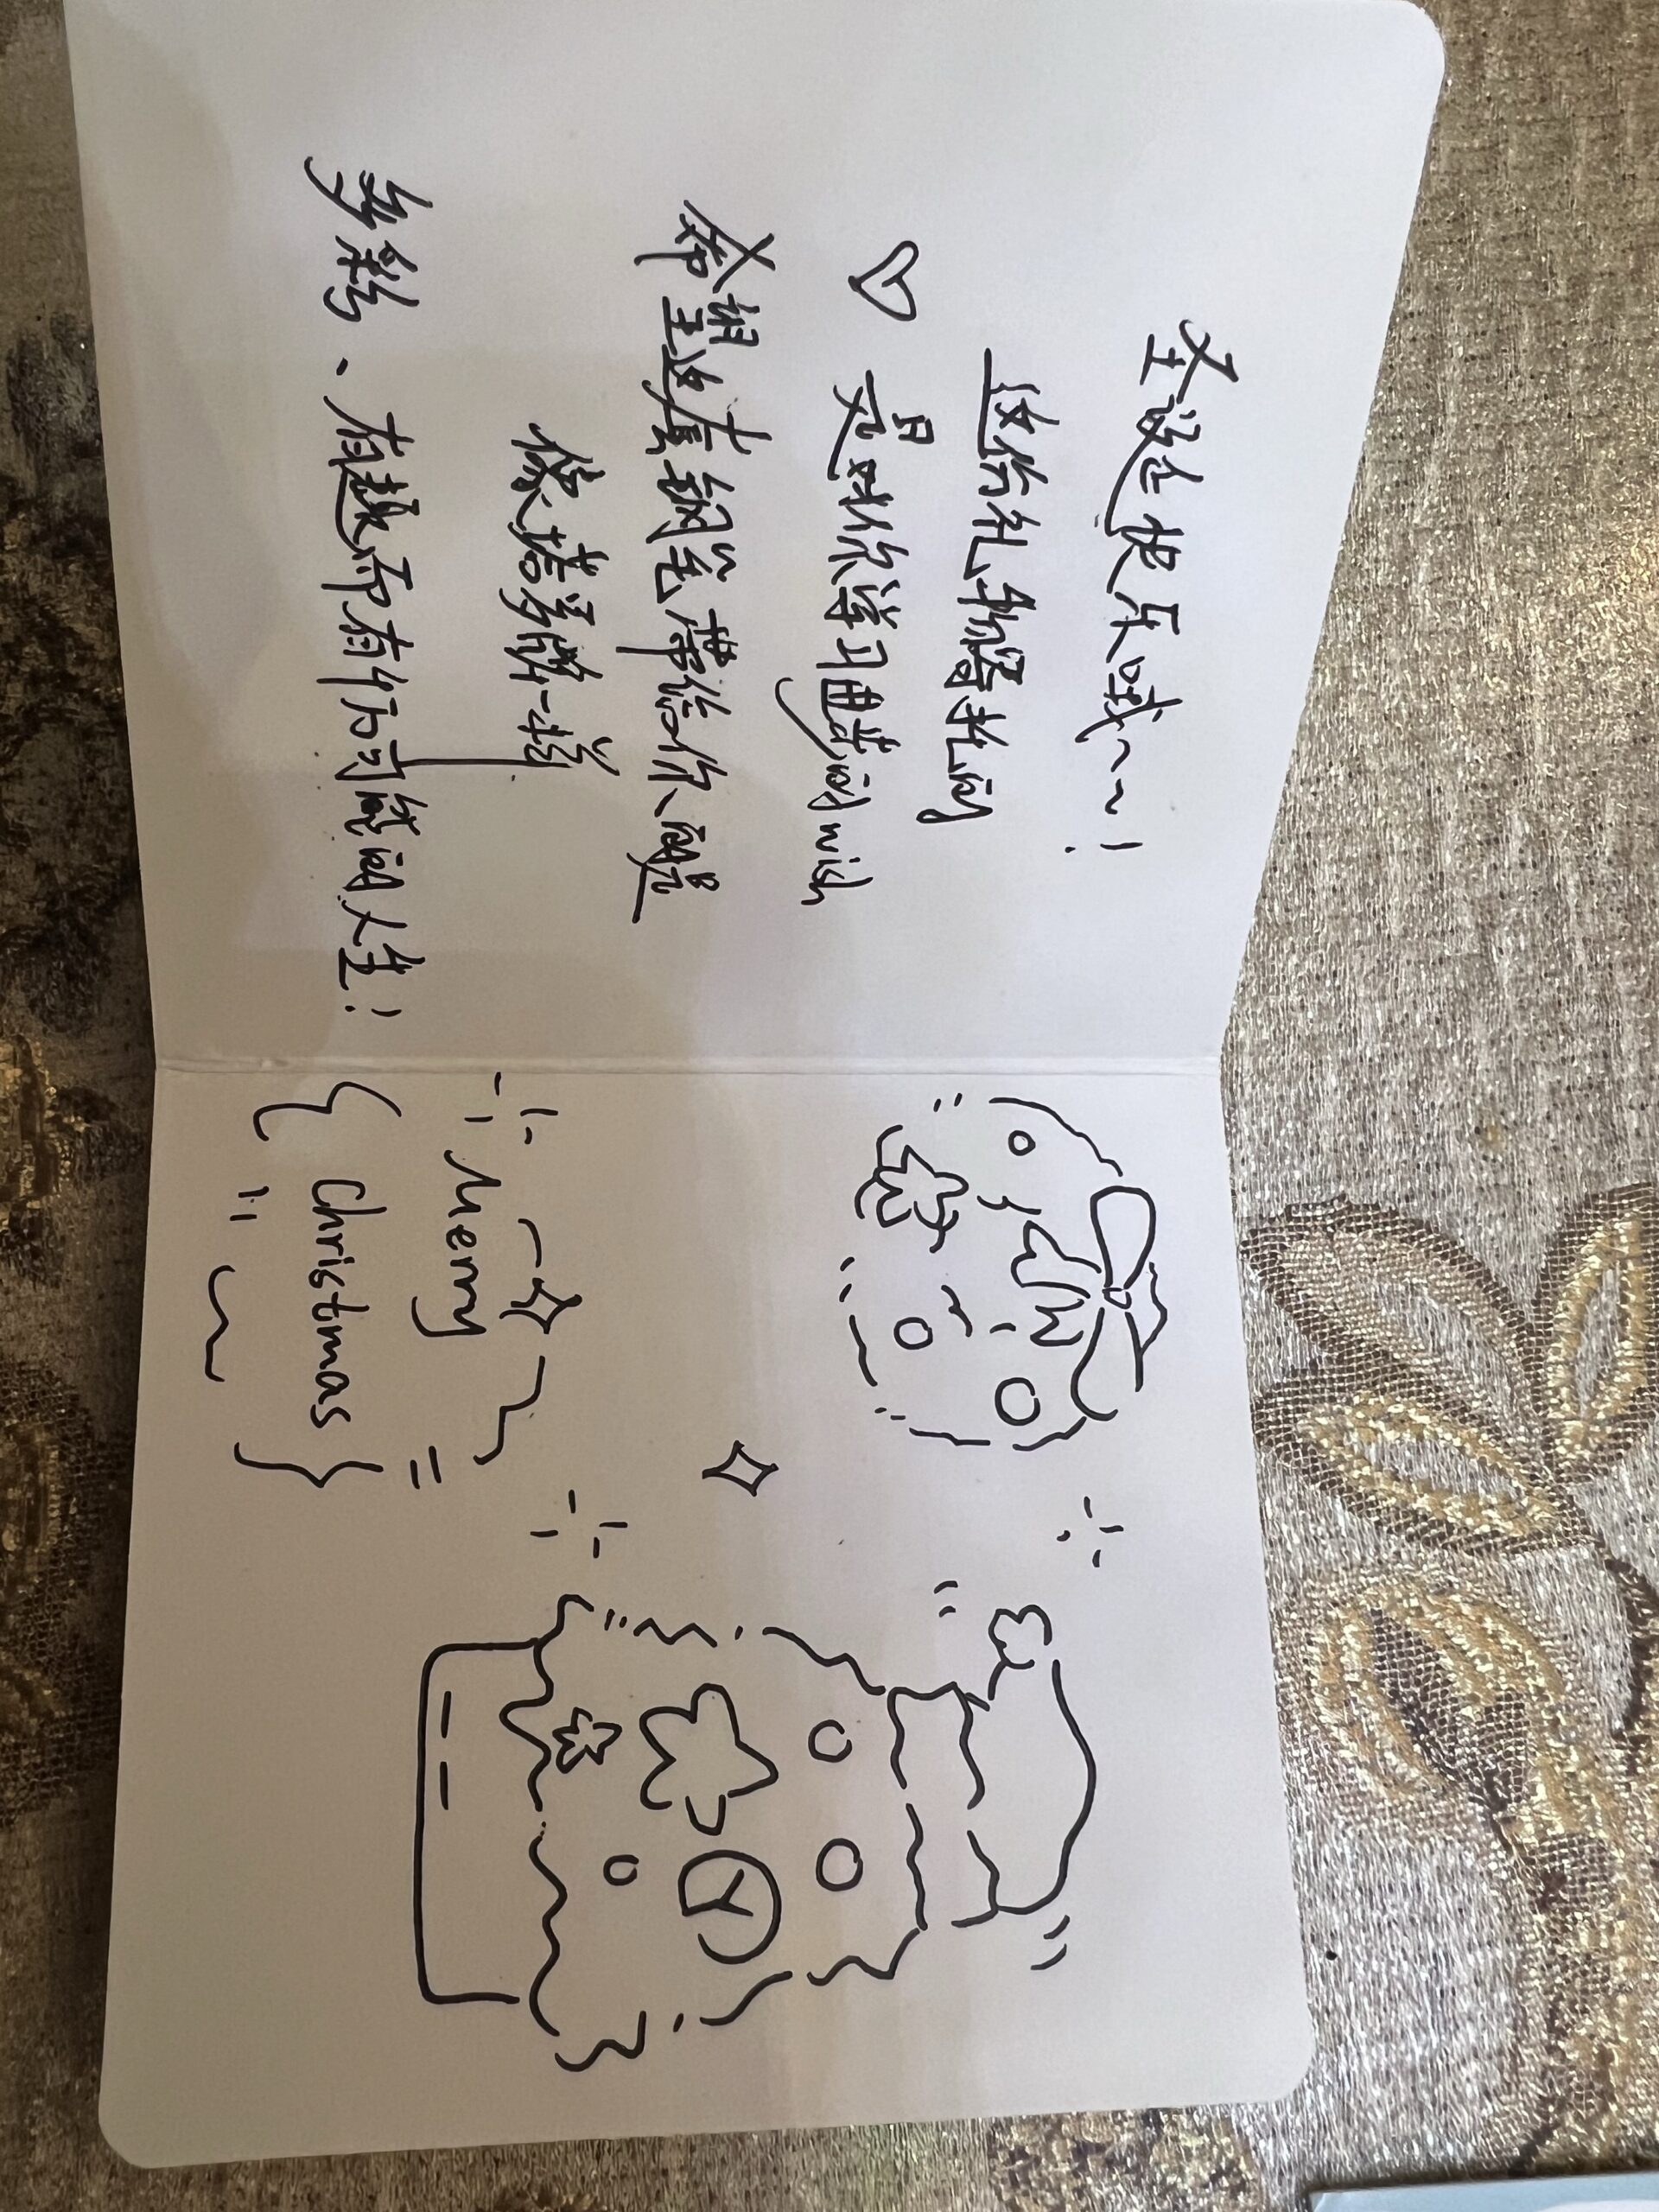 圣诞快乐哦~~!
这份礼物寄托的
♡ 是对你学习进步的wish
希望这套钢笔带给你的是
像塔罗牌一样
多彩、有趣而有所可能的人生!
Merry
Christmas